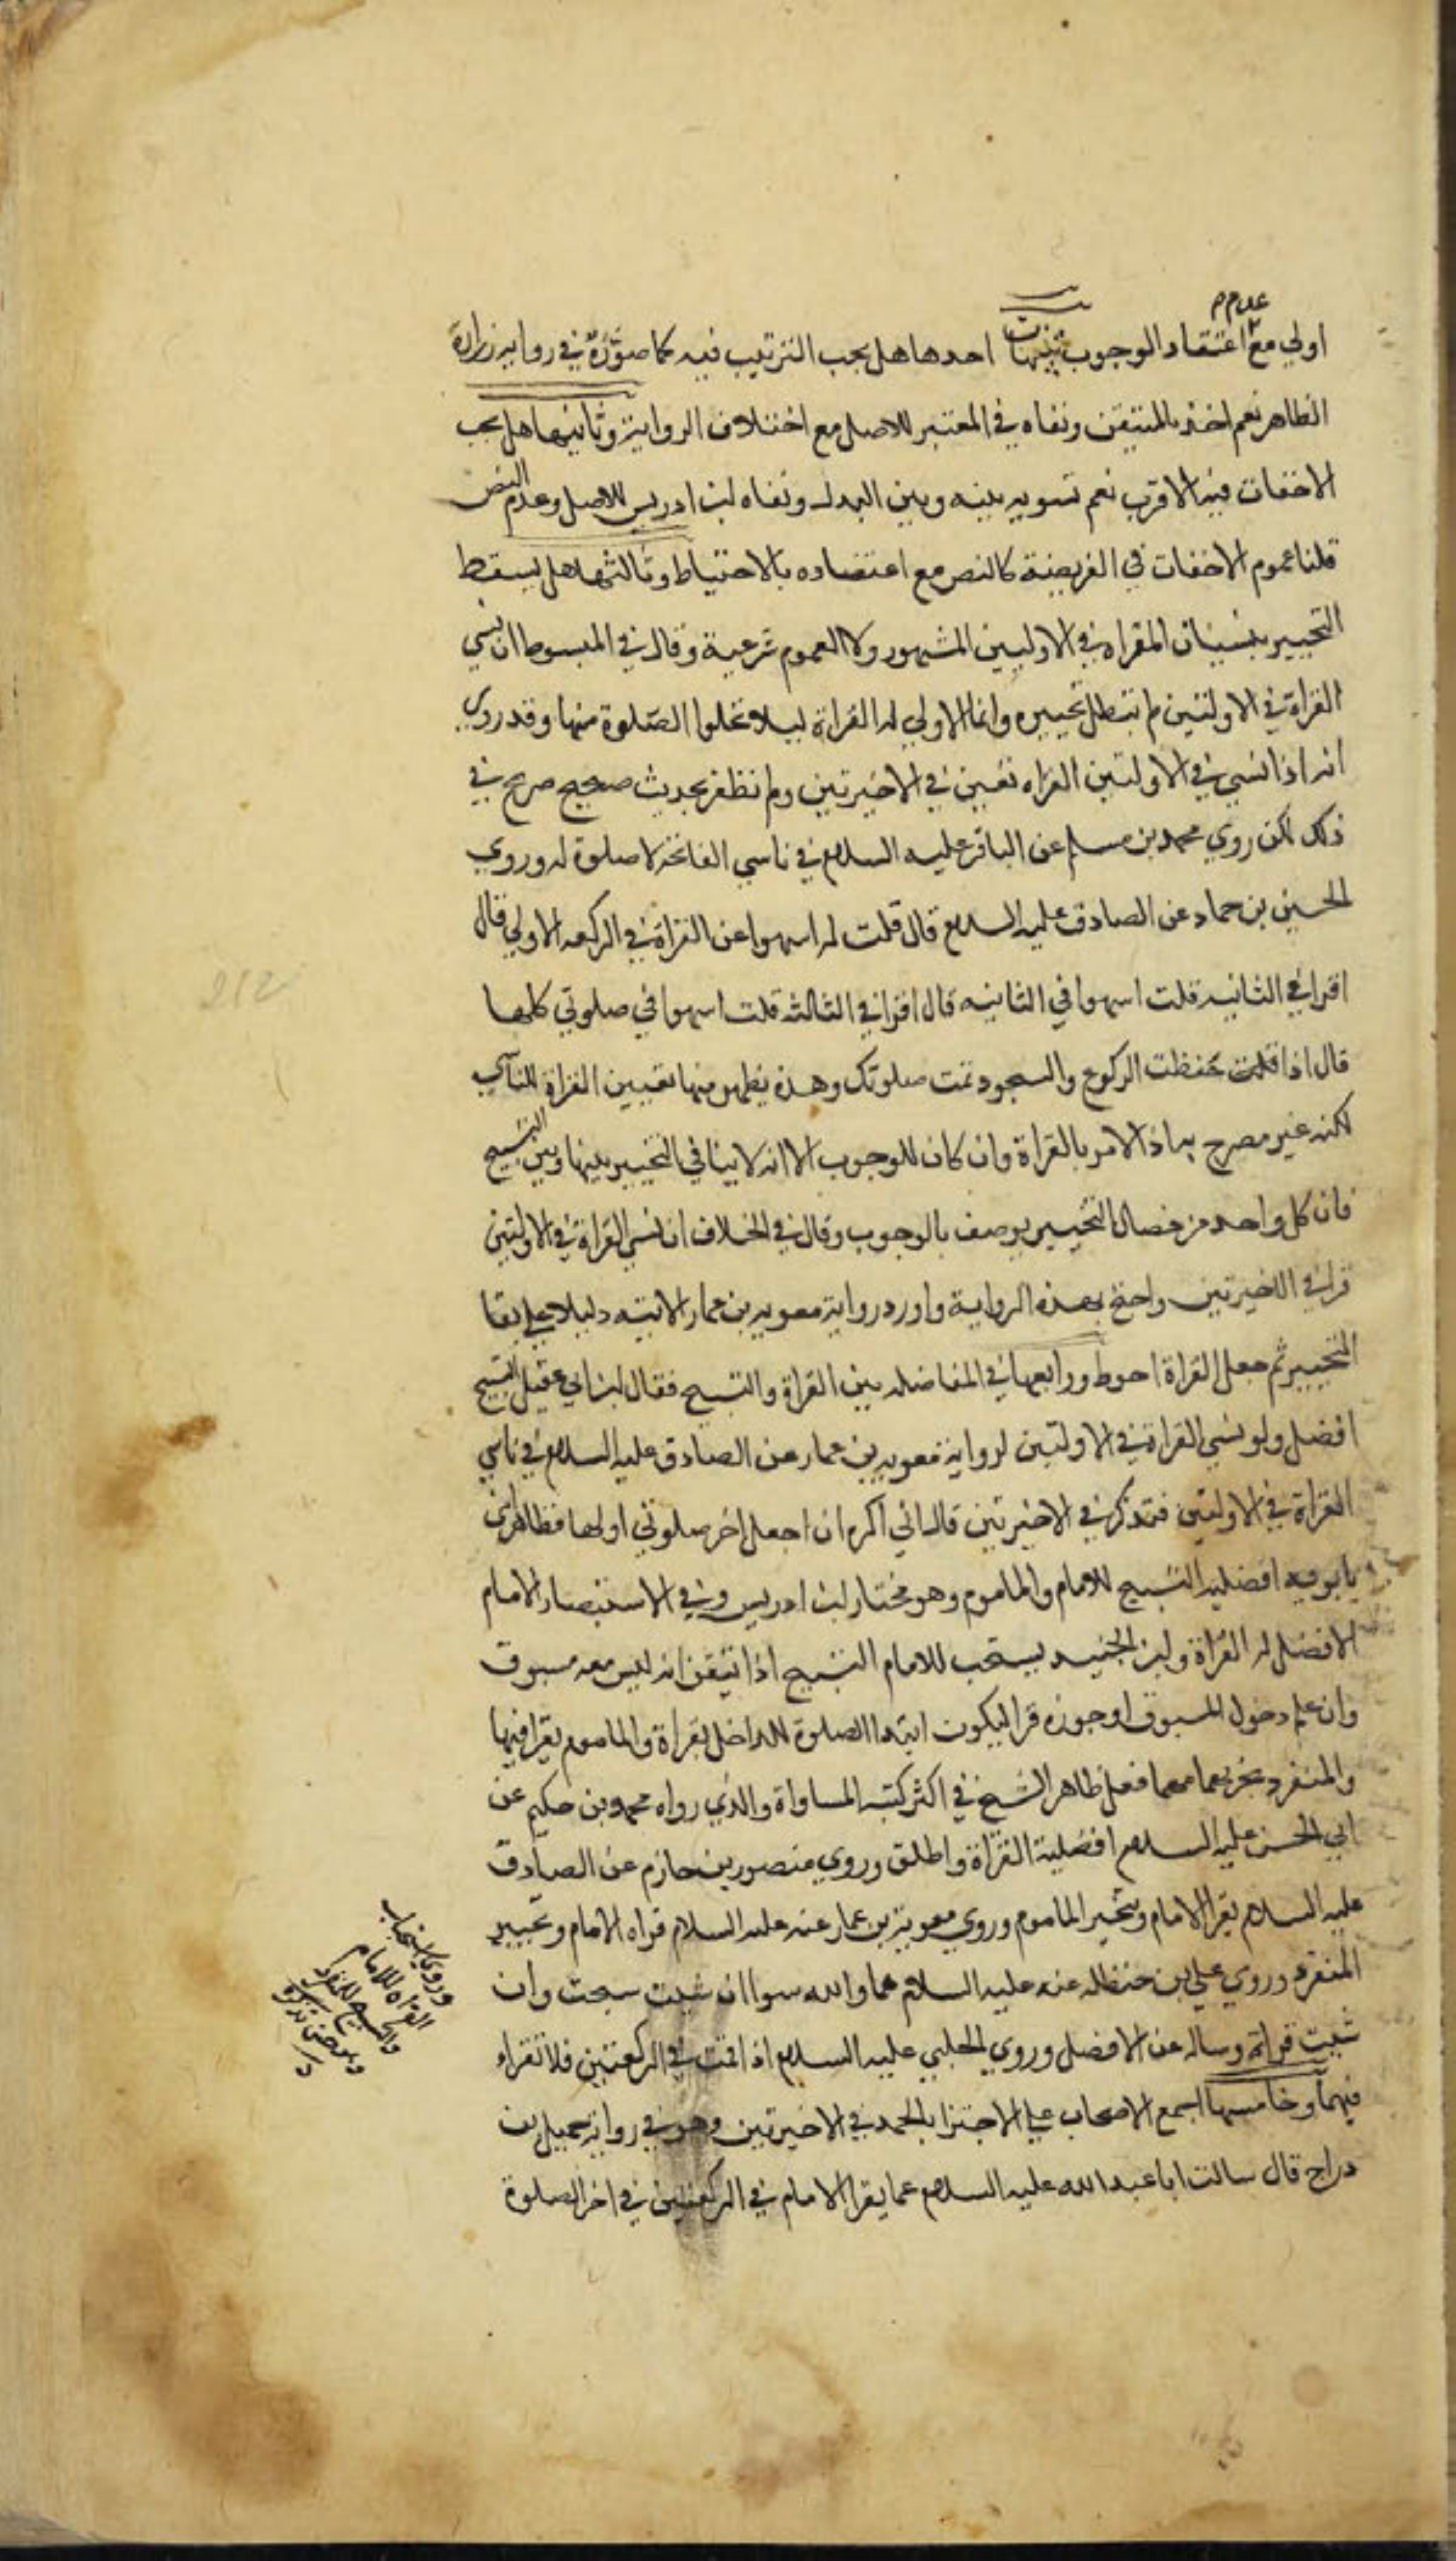 عدم
اولي مع اعتقاد الوجوب تنبيهات احدها هل يجب الترتيب فيه كما صورة في روايه زرارة
الظاهر نعم اخذ بالمتيقن ونفاه في المعتبر للاصل مع اختلاف الرواية وثانيها هل يجب
الاخفات فيه الاقرب نعم تسويه بينه وبين البدل ونفاه ابن ادريس للاصل وعدم النص
قلنا عموم الاخفات في الفريضة كالنص مع اعتضاده بالاحتياط وثالثها هل يسقط
التخيير بنسيان القراه في الاوليين المشهور لا لعموم شرعية وقال في المبسوط ان نسي
القراة في الاولتين لم تبطل تخييره وانما الاولي له القراة ليلا تخلوا الصلوة منها وقد روي
انه اذا نسي في الاولتين القراه تعين في الاخيرتين ولم نظفر بحديث صحيح صريح في
ذلك لكن روي محمد بن مسلم عن الباقر عليه السلام في ناسي الفاتحة لا صلوة له وروي
الحسين بن حماد عن الصادق عليه السلام قال قلت له اسهوا عن القراة في الركعه الاولي قال
اقرا في الثانيه قلت اسهوا في الثانيه قال اقرا في الثالثه قلت اسهوا في صلوتي كلها
قال اذا حفظت الركوع والسجود تمت صلوتك وهذه يظهر منها تعيين القراة للناسي
لكنه غير مصرح به اذ الامر بالقراة وان كان للوجوب الا انه لا ينافي التخيير بينها وبين التسبيح
فان كل واحد من خصال التخيير يوصف بالوجوب وقال في الخلاف ان نسي القراة في الاولتين
قرا في الاخيرتين واحتج بهذه الرواية واورد رواية معويه بن عمار الاتيه دليلا علي بقا
التخيير ثم جعل القراة احوط ورابعها في المفاضله بين القراة والتسبيح فقال ابن ابي عقيل التسبيح
افضل ولو نسي القراة في الاولتين لرواية معويه بن عمار عن الصادق عليه السلام في ناسي
القراة في الاولتين فتذكر في الاخيرتين قال اني اكره ان اجعل اخر صلوتي اولها فظاهر ابن
بابويه افضليه التسبيح للامام والماموم وهو مختار ابن ادريس وفي الاستبصار الامام
الافضل له القراة وابن الجنيد يستحب للامام التسبيح اذا تيقن انه ليس معه مسبوق
وان علم دخول المسبوق او جوزه قرا ليكون ابتدا الصلوة للداخل بقراة والماموم يقرا فيها
والمنفرد يجزيه مهما فعل ظاهر الشيخ في اكثر كتبه المساواة والذي رواه محمد بن حكيم عن
ابي الحسن عليه السلام افضلية القراة واطلق وروي منصور بن حازم عن الصادق
عليه السلام يقرا الامام ويتخير الماموم وروي معوية بن عمار عنه عليه السلام قراه الامام وتخيير
المنفرد وروي علي بن حنظله عنه عليه السلام هما والله سوا ان شيت سبحت وان
شيت قرات وساله عن الافضل وروي الحلبي عليه السلام اذا قمت في الركعتين فلا تقراء
فيهما وخامسها اجمع الاصحاب علي الاجتزا بالحمد في الاخيرتين وهو في رواية جميل بن
دراج قال سالت ابا عبد الله عليه السلام عما يقرا الامام في الركعتين في اخر الصلوة
وروي استحباب
القراه للامام
والتسبيح للمنفرد